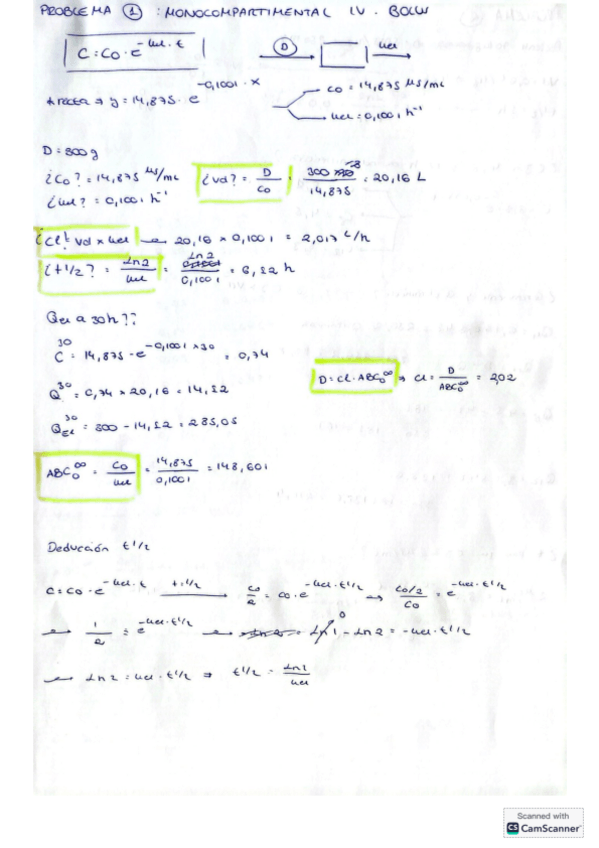 PROBLEMA ① : MONOCOMPARTIMENTAL I.V. BOLUS
C = C0 · e^-kel·t
D
kel
recta ⇒ y = 14,875 · e^-0,1001·x
C0 = 14,875 µg/mL
kel = 0,1001 h⁻¹
D = 300 g
¿C0? = 14,875 µg/mL
¿Vd? = D/C0 = 300/14,875 = 20,16 L
¿kel? = 0,1001 h⁻¹
¿Cl? = Vd × kel → 20,16 × 0,1001 = 2,017 L/h
¿t1/2? = Ln2/kel = Ln2/0,1001 = 6,92 h
Qel a 30h??
C^30 = 14,875 · e^-0,1001×30 = 0,74
Q^30 = 0,74 × 20,16 = 14,92
D = Cl · ABC0^∞ ⇒ Cl = D/ABC0^∞ = 2,02
QEl^30 = 300 - 14,92 = 285,08
ABC0^∞ = C0/kel = 14,875/0,1001 = 148,601
Deducción t1/2
C = C0 · e^-kel·t → t1/2 C0/2 = C0 · e^-kel·t1/2 → C0/2/C0 = e^-kel·t1/2
→ 1/2 = e^-kel·t1/2 → Ln1 0 - Ln2 = -kel·t1/2
→ Ln2 = kel·t1/2 ⇒ t1/2 = Ln2/kel
Scanned with
CS CamScanner